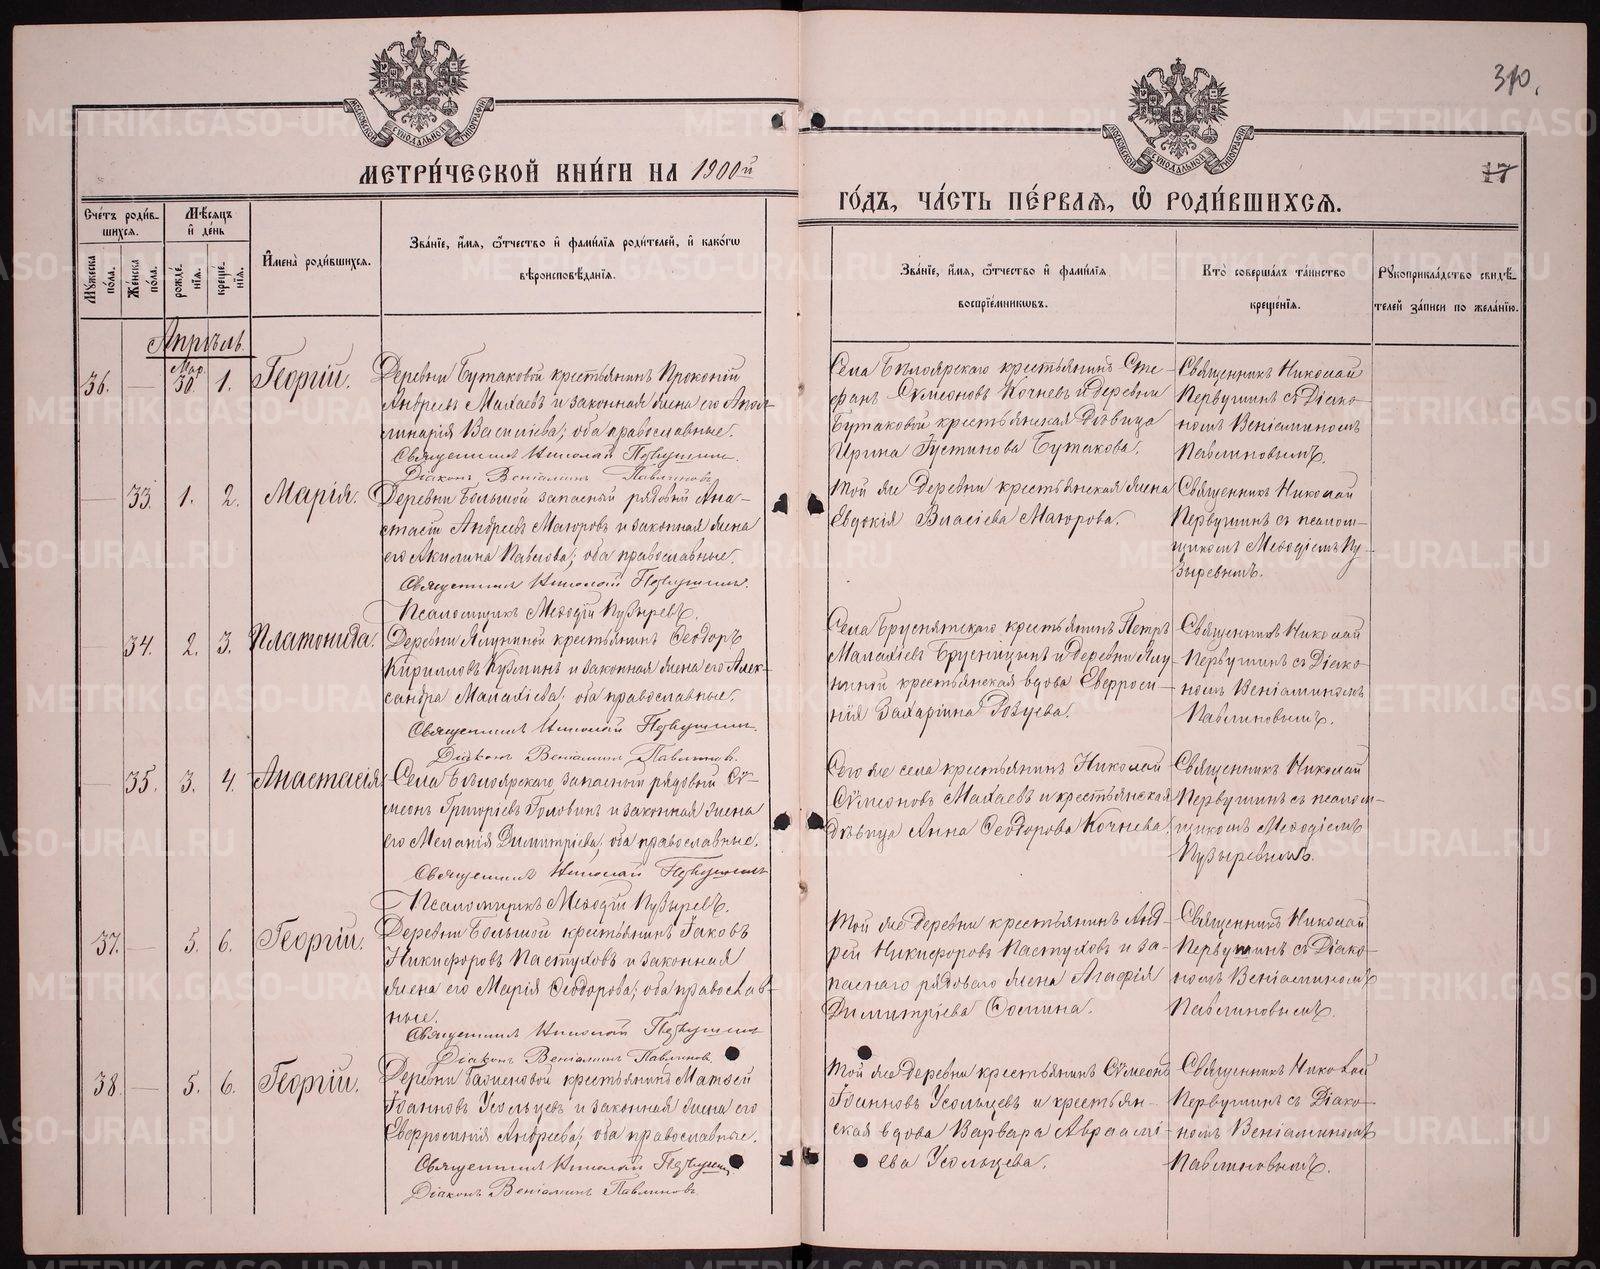 310.
17
МЕТРИ́ЧЕСКОЙ КНИ́ГИ НА 1900й
ГО́ДЪ, ЧА́СТЬ ПЕ́РВАѦ, Ѿ РОДИ́ВШИХСѦ.
Сче́тъ роди́в-
шихся.
Мѣ́сяцъ
и҆ де́нь
Мꙋ́жеска
по́ла.
Же́нска
по́ла.
рожде́-
нїя.
креще́-
нїя.
И҆мена̀ роди́вшихся.
Зва́нїе, и҆́мя, ѻ҆́тчество и҆ фами́лїя роди́телей, и҆ како́гѡ
вѣроисповѣ́данїя.
Зва́нїе, и҆́мя, ѻ҆́тчество и҆ фами́лїя
воспрїе́мникѡвъ.
Кто̀ соверша́лъ та́инство
креще́нїя.
Рꙋкоприкла́дство свидѣ́-
телей за́писи по жела́нїю.
Апрѣль
36. — Мар. 30. 1. Георгій.
Деревни Бутаковой крестьянинъ Прокопій
Андреевъ Махаевъ и законная жена его Апол-
линарія Василіева; оба православные.
Священникъ Николай Первушинъ.
Діаконъ Веніаминъ Павлиновъ.
Села Бѣлоярскаго крестьянинъ Сте-
фанъ Сѵмеоновъ Кочневъ и деревни
Бутаковой крестьянская дѣвица
Ирина Іустинова Бутакова.
Священникъ Николай
Первушинъ съ Діако-
номъ Веніаминомъ
Павлиновымъ.
— 33. 1. 2. Марія.
Деревни Большой запасный рядовый Ана-
стасій Андреевъ Маюровъ и законная жена
его Акилина Павлова; оба православные.
Священникъ Николай Первушинъ.
Псаломщикъ Меѳодій Пузыревъ.
Той же деревни крестьянская жена
Евдокія Власіева Маюрова.
Священникъ Николай
Первушинъ съ псалом-
щикомъ Меѳодіемъ Пу-
зыревымъ.
— 34. 2. 3. Платонида.
Деревни Ялуниной крестьянинъ Ѳеодоръ
Кирилловъ Кузминъ и законная жена его Алек-
сандра Малахіева; оба православные.
Священникъ Николай Первушинъ.
Діаконъ Веніаминъ Павлиновъ.
Села Бруснятскаго крестьянинъ Петръ
Малахіевъ Брусницынъ и деревни Ялу-
ниной крестьянская вдова Евфроси-
нія Захаріина
Священникъ Николай
Первушинъ съ Діако-
номъ Веніаминомъ
Павлиновымъ.
— 35. 3. 4. Анастасія
Села Бѣлоярскаго запасный рядовый Сѵ-
меонъ Григоріевъ Головинъ и законная жена
его Меланія Димитріева; оба православные.
Священникъ Николай Первушинъ
Псаломщикъ Меѳодій Пузыревъ.
Сего же села крестьянинъ Николай
Сѵмеоновъ Махаевъ и крестьянская
дѣвица Анна Ѳеодорова Кочнева.
Священникъ Николай
Первушинъ съ псалом-
щикомъ Меѳодіемъ
Пузыревымъ.
37. — 5. 6. Георгій.
Деревни Большой крестьянинъ Іаковъ
Никифоровъ Пастуховъ и законная
жена его Марія Ѳеодорова; оба православ-
ные.
Священникъ Николай Первушинъ
Діаконъ Веніаминъ Павлиновъ.
Той же деревни крестьянинъ Анд-
рей Никифоровъ Пастуховъ и за-
паснаго рядоваго жена Агафія
Димитріева Ѳомина.
Священникъ Николай
Первушинъ съ Діако-
номъ Веніаминомъ
Павлиновымъ.
38. — 5. 6. Георгій.
Деревни Гагиеновой крестьянинъ Матѳей
Іоанновъ Усольцевъ и законная жена его
Евфросинія Андреева; оба православные.
Священникъ Николай Первушинъ
Діаконъ Веніаминъ Павлиновъ.
Той же деревни крестьянинъ Сѵмеонъ
Іоанновъ Усольцевъ и крестьян-
ская вдова Варвара Авраамі-
ева Усольцева.
Священникъ Николай
Первушинъ съ Діако-
номъ Веніаминомъ
Павлиновымъ.